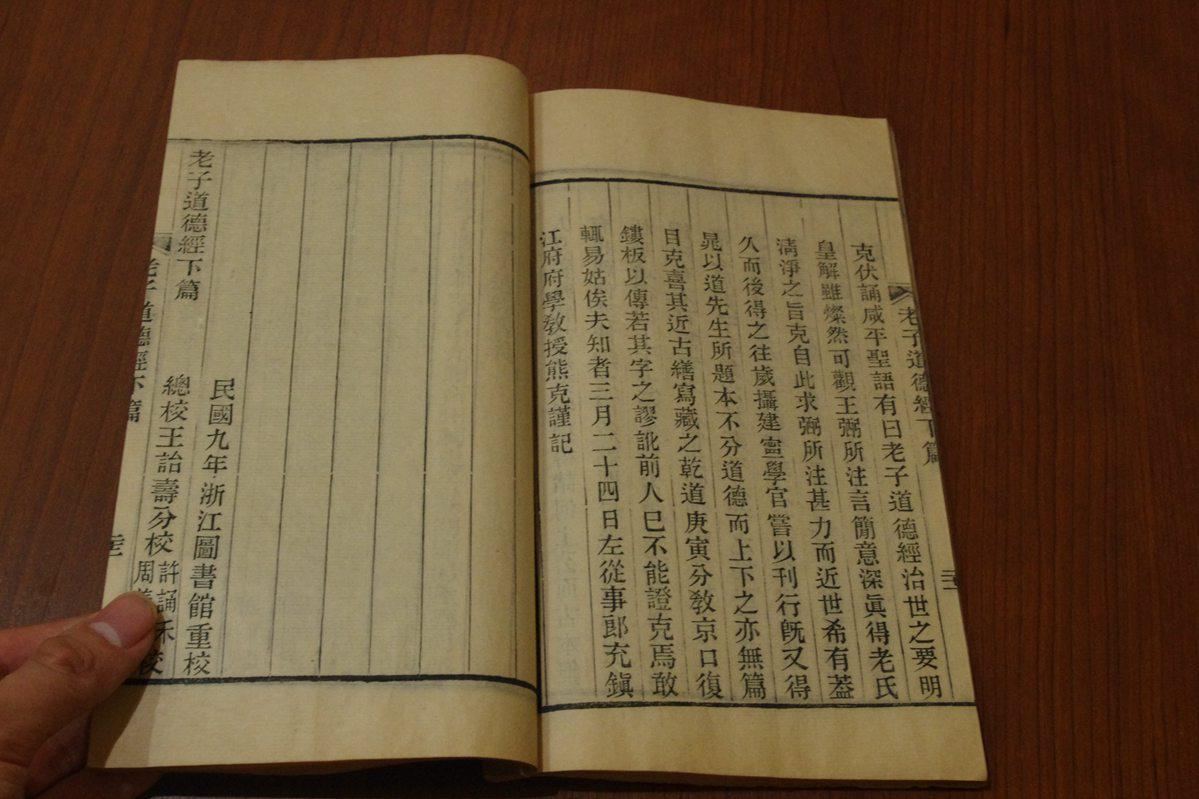 老子道德經下篇
克伏誦咸平聖語有曰老子道德經治世之要明
皇解雖燦然可觀王弼所注言簡意深眞得老氏
清淨之旨克自此求弼所注甚力而近世希有蓋
久而後得之往歲攝建寧學官嘗以刊行旣又得
晁以道先生所題本不分道德而上下之亦無篇
目克喜其近古繕寫藏之乾道庚寅分敎京口復
鏤板以傳若其字之謬訛前人已不能證克焉敢
輒易姑俟夫知者三月二十四日左從事郎充鎭
江府府學敎授熊克謹記
民國九年浙江圖書館重校
老子道德經下篇
總校王詒壽分校
許誦禾
周 校
老子道德經下篇